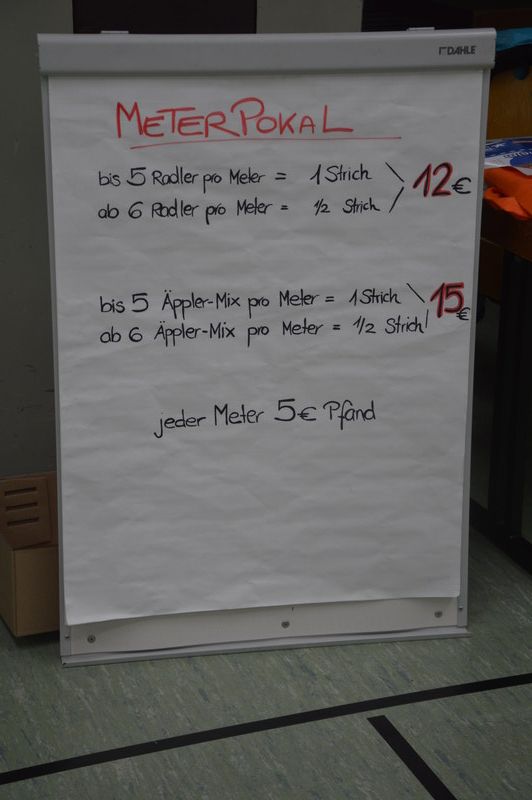 DAHLE
METERPOKAL
bis 5 Radler pro Meter = 1 Strich \ 12€
ab 6 Radler pro Meter = 1/2 Strich /
bis 5 Äppler-Mix pro Meter = 1 Strich \ 15€
ab 6 Äppler-Mix pro Meter = 1/2 Strich /
jeder Meter 5€ Pfand